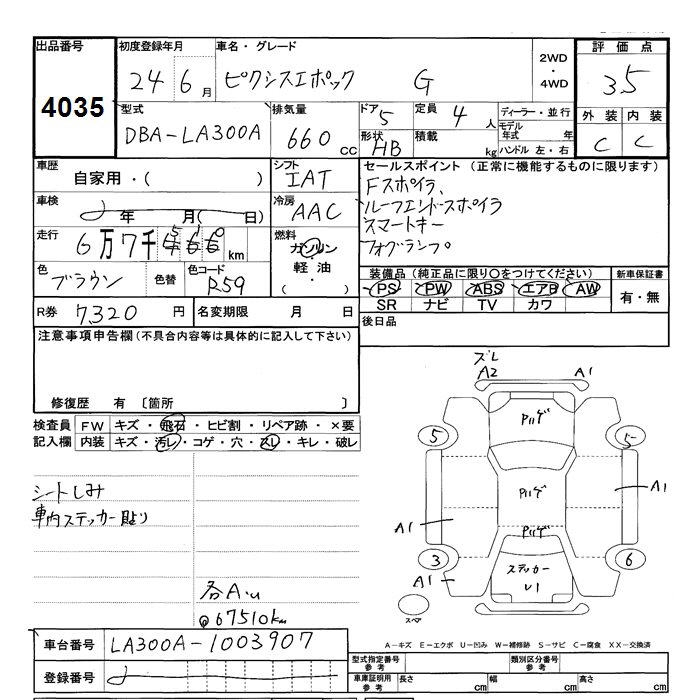 出品番号 初度登録年月 車名・グレード 2WD・4WD 評価点
4035 24 6月 ピクシスエポック G 35
型式 排気量 ドア 5 定員 4人 ディーラー・並行 外装 内装
DBA-LA300A 660cc 形状 HB 積載 kg モデル年式 年 C C
ハンドル 左・右
車歴 自家用・( ) シフト IAT セールスポイント (正常に機能するものに限ります)
車検 年 月(日) 冷房 AAC Fスポイラ、
ルーフエンドスポイラ
走行 6万7千466km 燃料 ガソリン・軽油・( ) スマートキー
フォグランプ。
色 ブラウン 色替 色コード R59 装備品 (純正品に限り○をつけてください) 新車保証書
PS PW ABS エアB AW 有・無
R券 7,320円 名変期限 月 日 SR ナビ TV カワ
注意事項申告欄(不具合内容等は具体的に記入して下さい) 後日品
修復歴 有 〔箇所 〕
検査員 FW キズ・飛石・ヒビ割・リペア跡・×要
記入欄 内装 キズ・汚レ・コゲ・穴・スレ・キレ・破レ
シートしみ
車内ステッカー貼り
各AU
@67510km
ズレ
A2 A1
Pハゲ
5 5
Pハゲ
A1
A1 Pハゲ
3 6
ステッカー
A1 U1
スペア
車台番号 LA300A-1003907
A-キズ E-エクボ U-凹み W-補修跡 S-サビ C-腐食 XX-交換済
登録番号
型式指定番号 参考 類別区分番号 参考
車庫証明用 参考 長さ cm 幅 cm 高さ cm